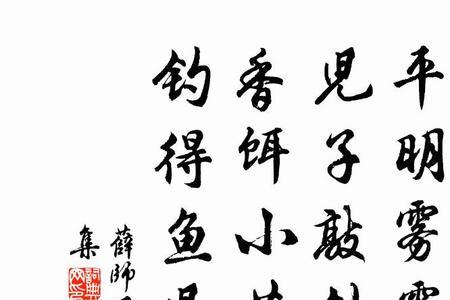 平明雾
兒子敲
香饵小
钓得鱼
薛师
集